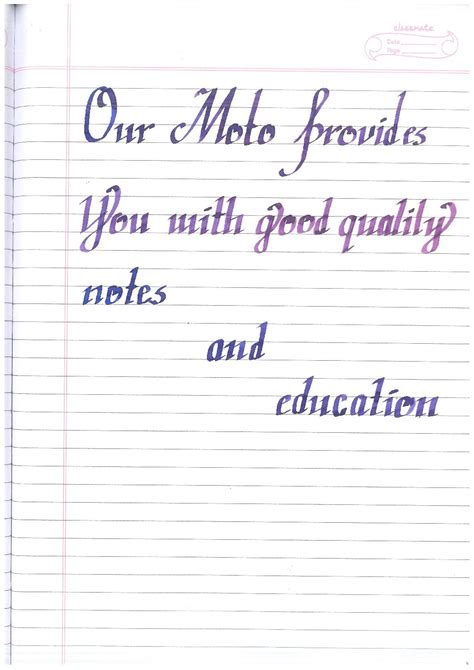 classmate
Date
Page
Our Moto provides
You with good quality
notes
and
education